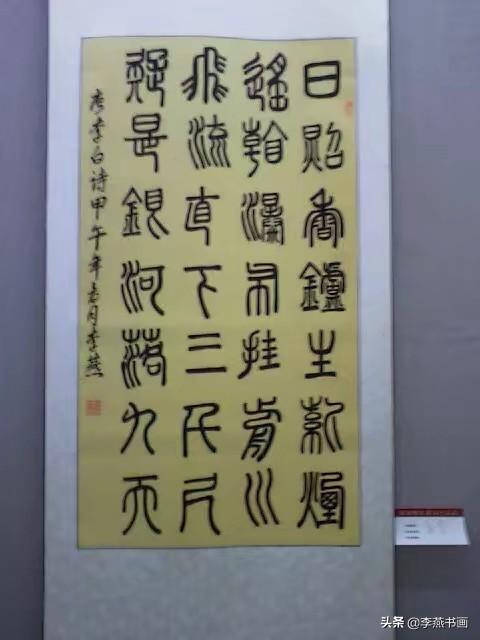 日照香鑪生紫煙
遙看瀑布挂前川
飛流直下三千尺
疑是銀河落九天
唐李白诗甲午年春月李燕
头条 @李燕书画